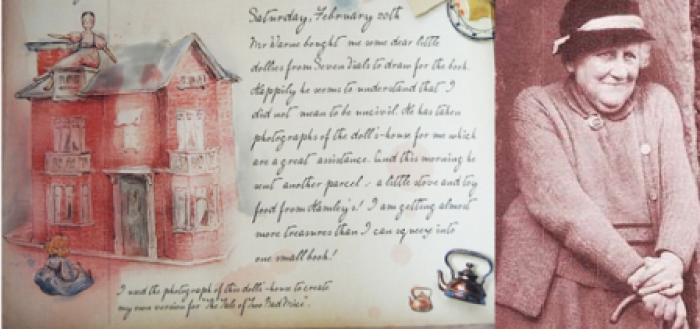 Saturday, February 20th
Mr Warne bought me some dear little
dollies from Seven Dials to draw for the book.
Happily he seems to understand that I
did not mean to be uncivil. He has taken
photographs of the doll's-house for me which
are a great assistance. And this morning he
sent another parcel - a little stove and toy
food from Hamley's! I am getting almost
more treasures than I can squeeze into
one small book!
I used the photograph of this dolls-house to create
my own version for "The Tale of Two Bad Mice".